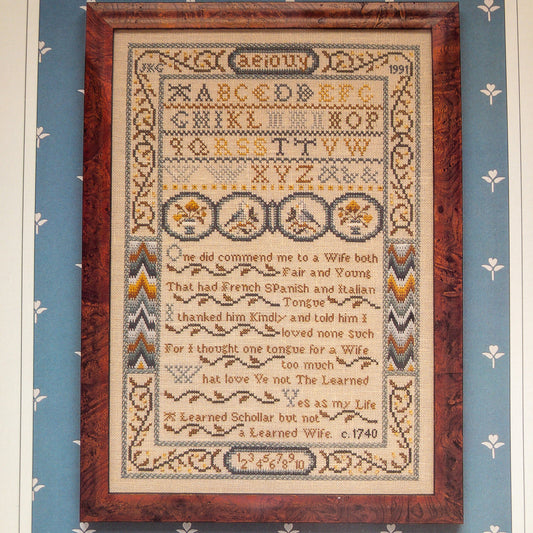 aeiouy
JKG 1991
AABCCDDEFG
GHIKLMNOP
9QRSSTTVW
WWXYZ&&
One did commend me to a Wife both
Fair and Young
That had French SPanish and Italian
Tongue
I thanked him Kindly and told him I
loved none such
For I thought one tongue for a Wife
too much
What love Ye not The Learned
Yes as my Life
A Learned Schollar but not
a Learned Wife. c.1740
1 3 5 7 9
2 4 6 8 10